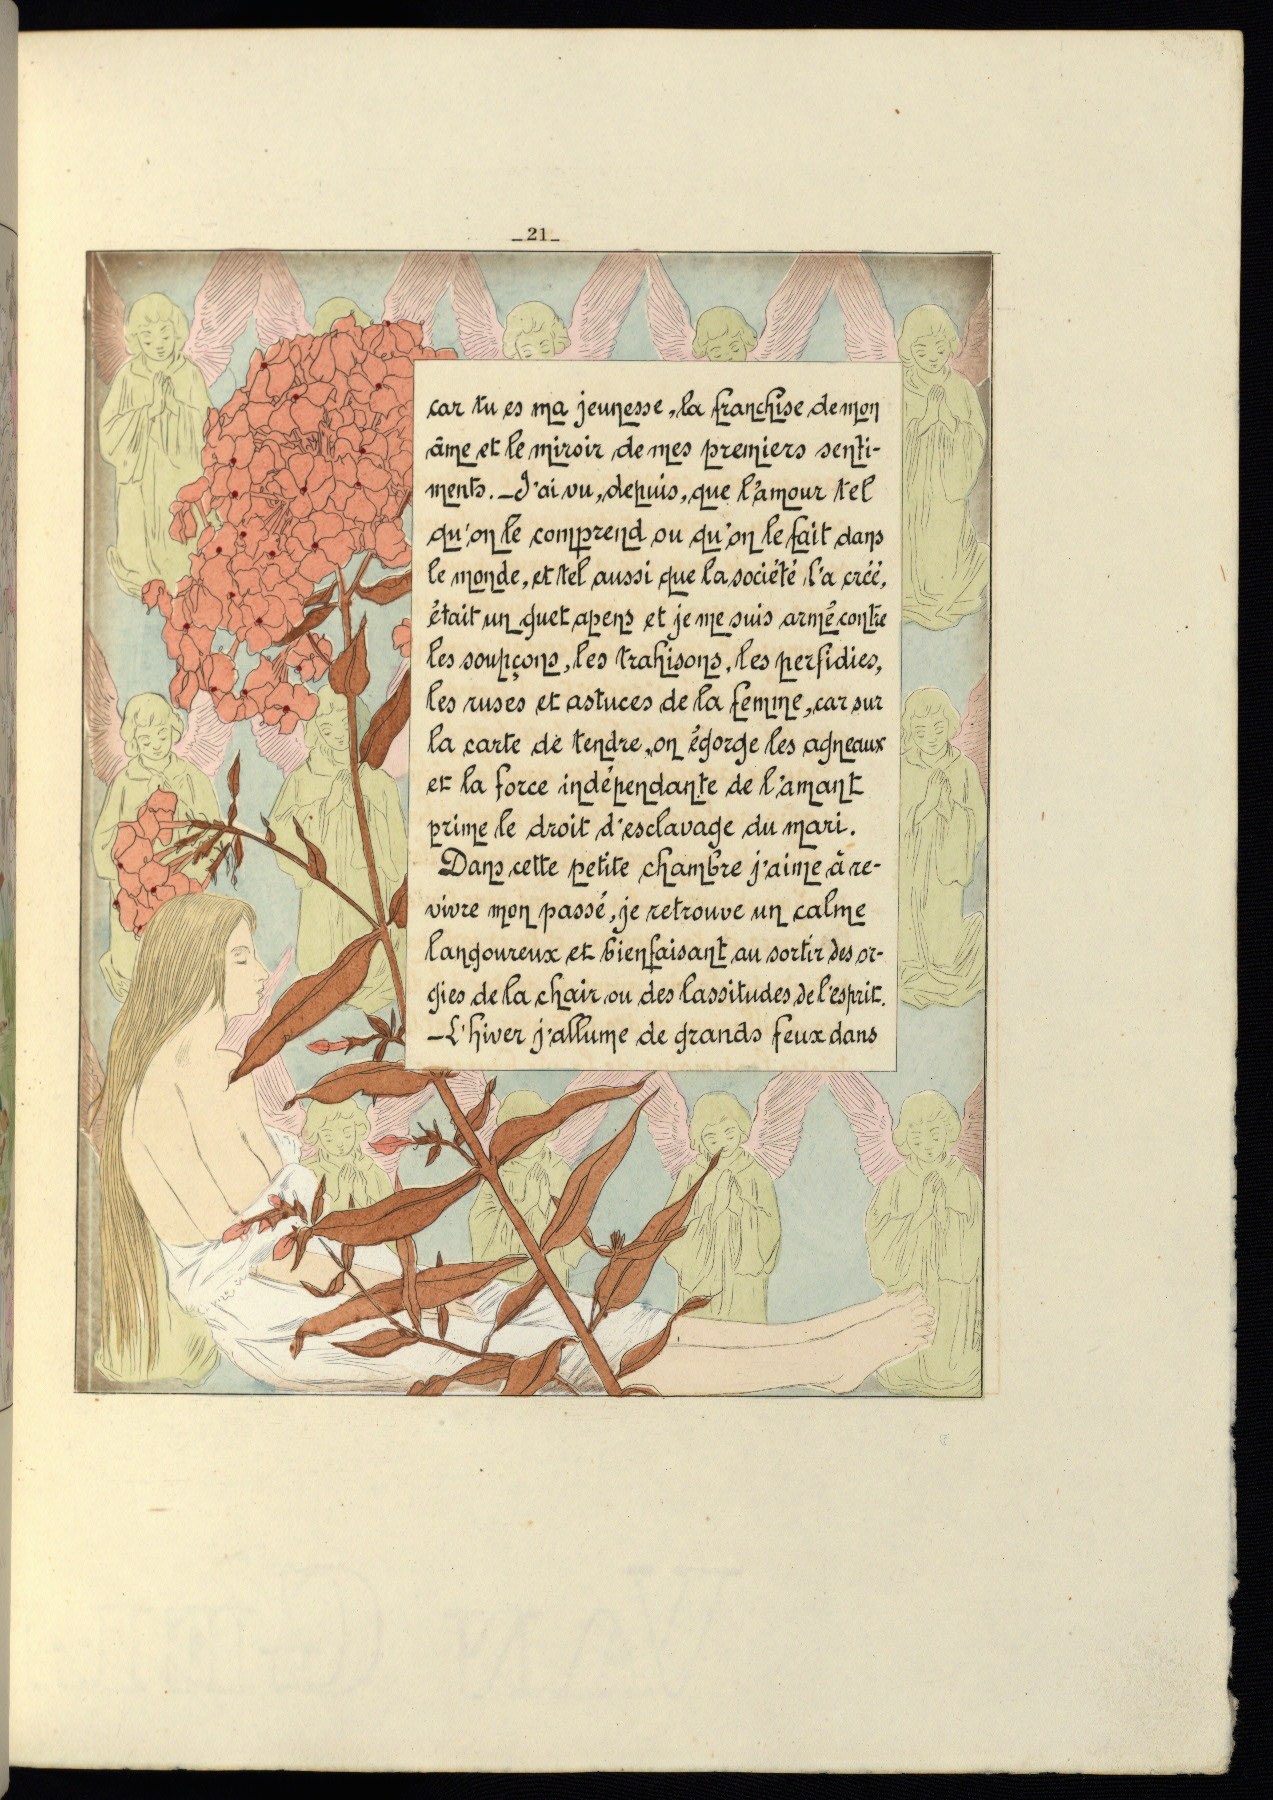 _21_
car tu es ma jeunesse, la franchise de mon
âme et le miroir de mes premiers senti-
ments. — J'ai vu, depuis, que l'amour tel
qu'on le comprend ou qu'on le fait dans
le monde, et tel aussi que la société l'a créé,
était un guet apens et je me suis armé contre
les soupçons, les trahisons, les perfidies,
les ruses et astuces de la femme, car sur
la carte de tendre, on égorge les agneaux
et la force indépendante de l'amant
prime le droit d'esclavage du mari.
Dans cette petite chambre j'aime à re-
vivre mon passé, je retrouve un calme
langoureux et bienfaisant au sortir des or-
gies de la chair ou des lassitudes de l'esprit.
— L'hiver j'allume de grands feux dans